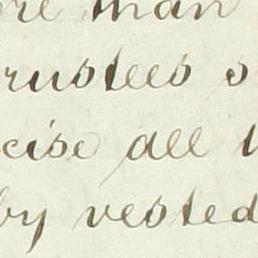 ore than
rustees s
cise all
by vested